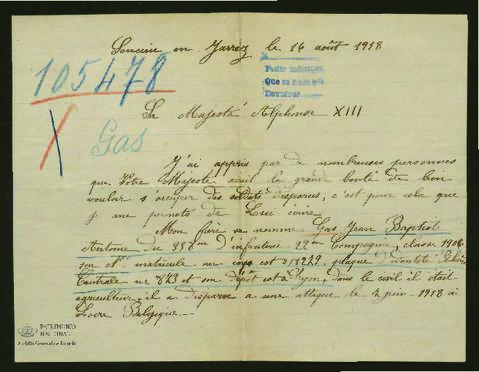 Soucieu en Jarrez le 14 août 1918
105478
Pedir informes
Que se haga
Devolver
Sa Majesté Alphonse XIII
X
Gas
J'ai appris par de nombreuses personnes
que Votre Majesté avait la grande bonté de bien
vouloir s'occuper des soldats disparus, c'est pour cela que
je me permets de Lui écrire
Mon frère se nomme Gas Jean Baptiste
Antoine du 358ème d'infanterie 22ème Compagnie, classe 1908
son N° matricule au corps est plaque d'identité Rhône
Centrale n° 843 et son dépôt est à Lyon, dans le civil il était
agriculteur, il a disparu a une attaque le 2 juin 1918 à
Locre Belgique
PATRIMONIO
NACIONAL
Archivo General de Palacio